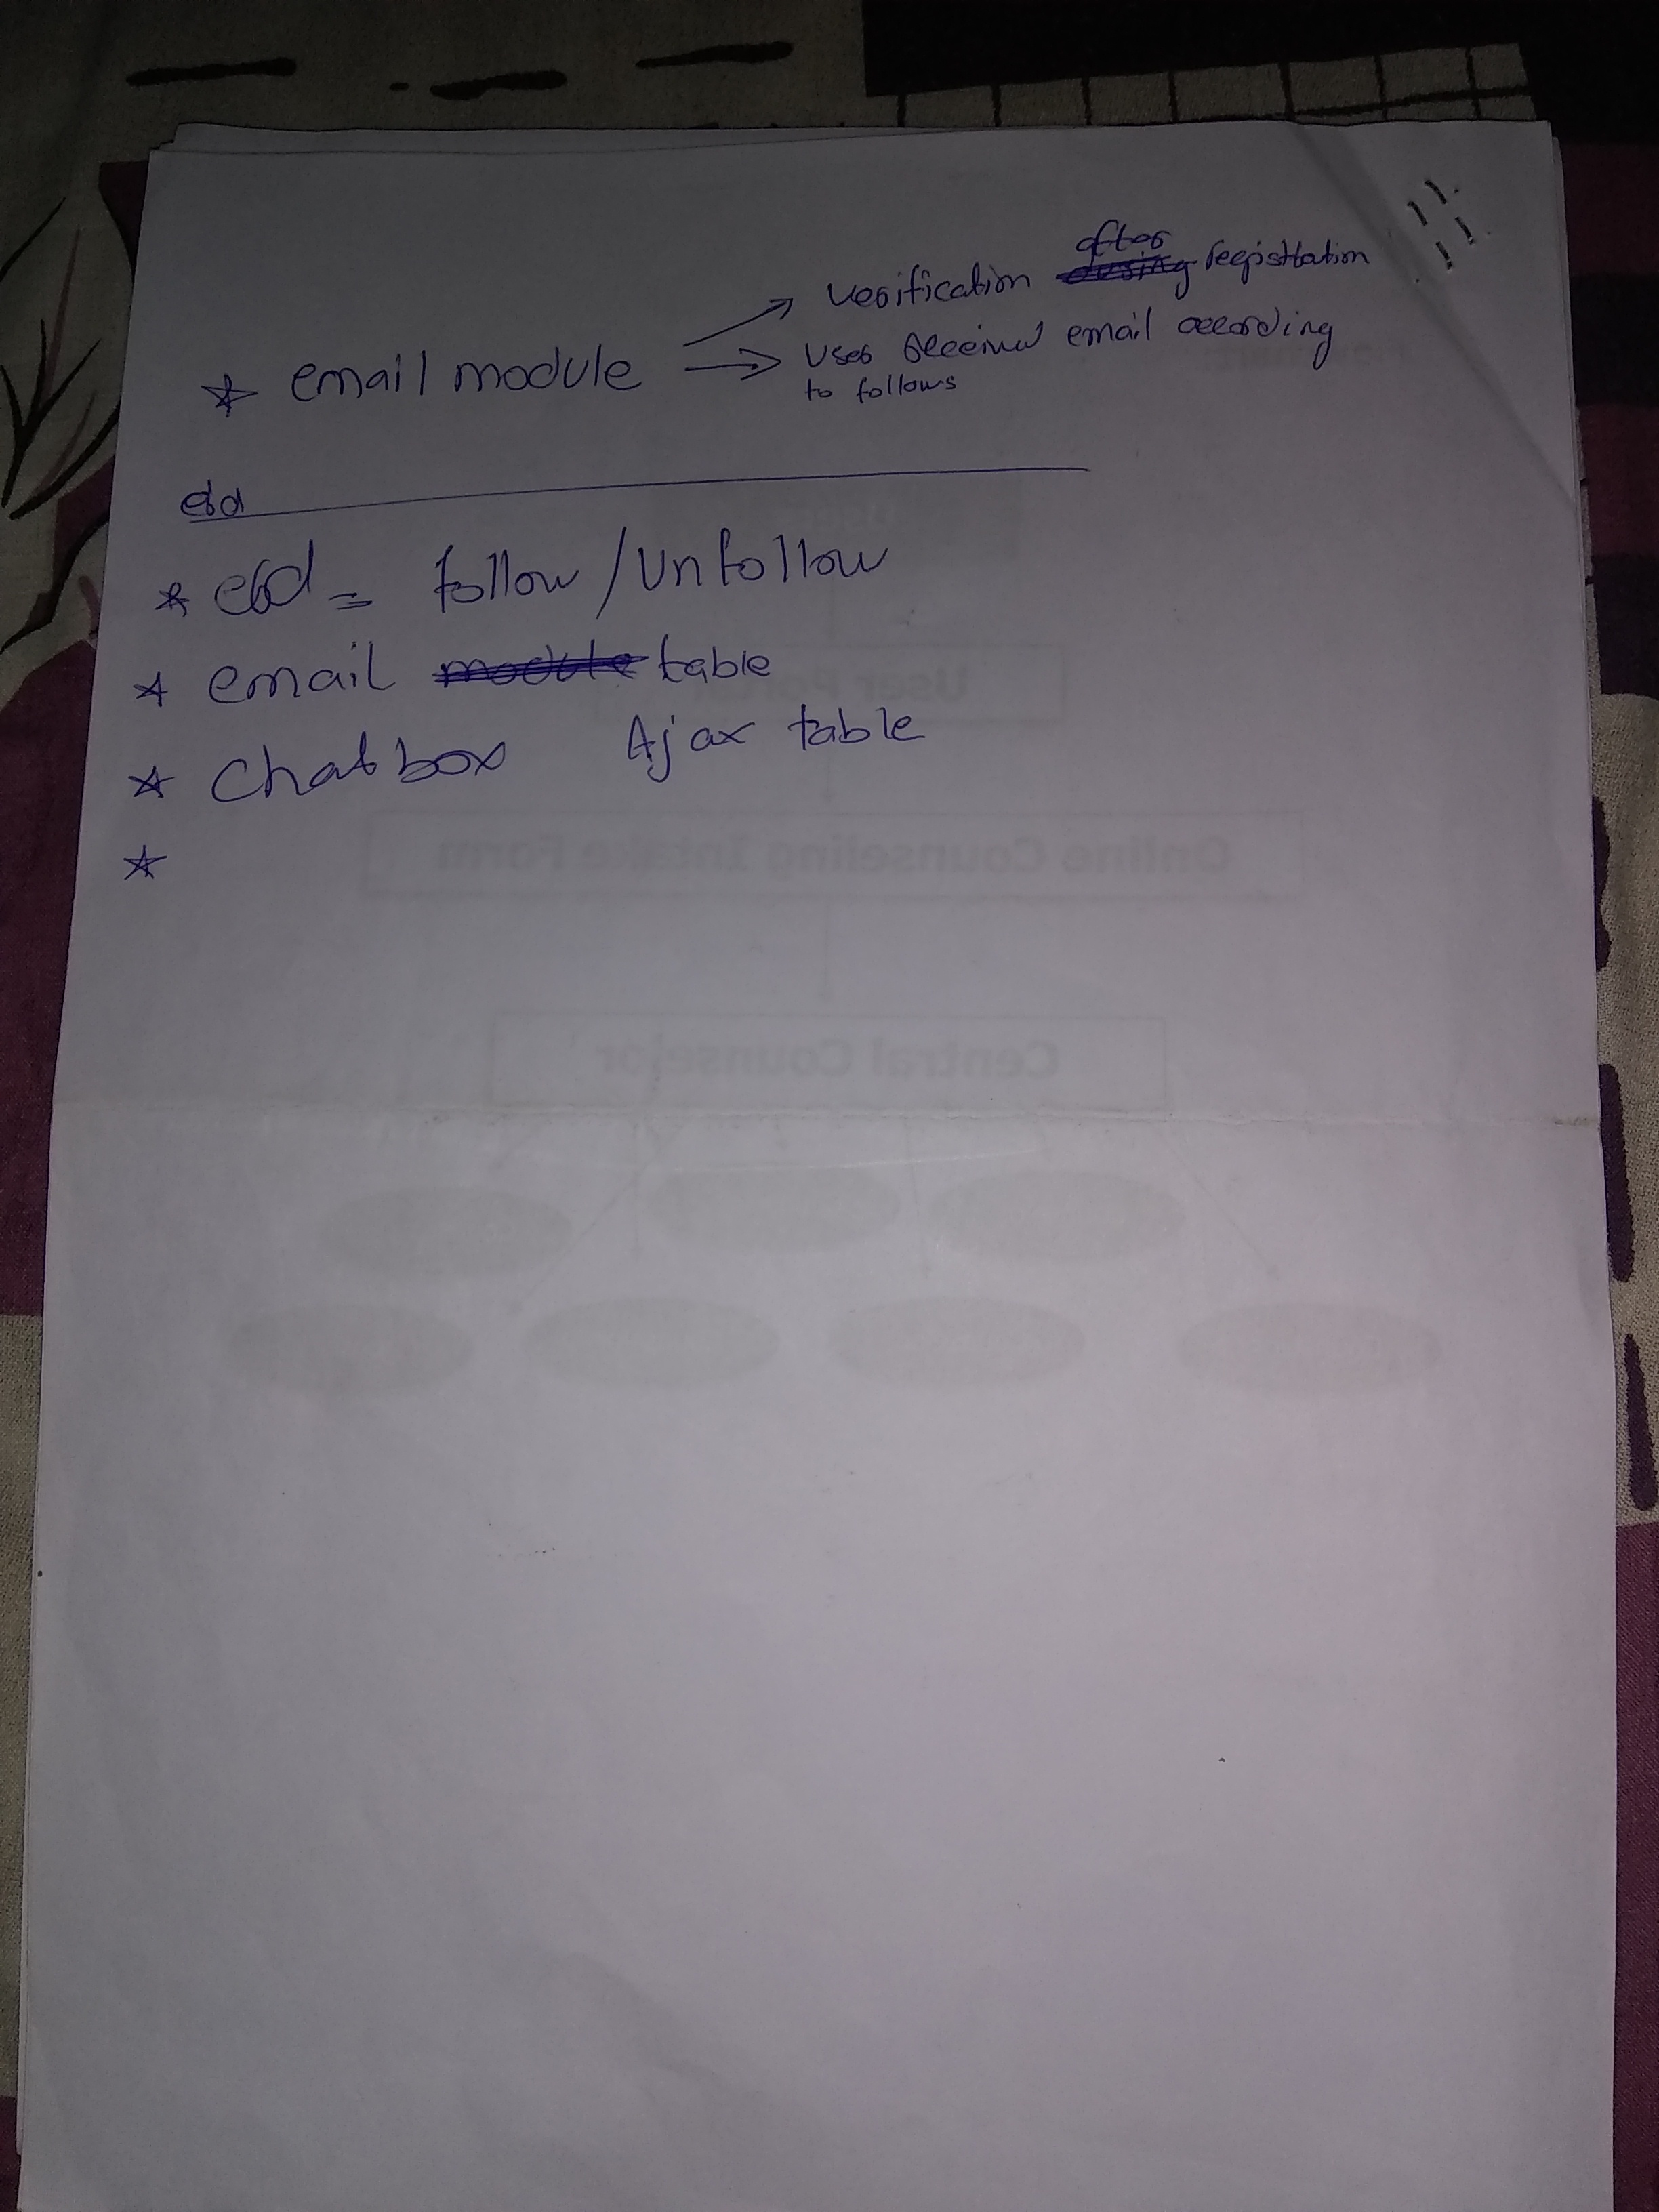 after
verification during registration
* email module
User received email according
to follows
erd
* erd = follow/Unfollow
* email module table
* Chatbox Ajax table
*
User Portal
Online Counseling Intake Form
Central Counselor